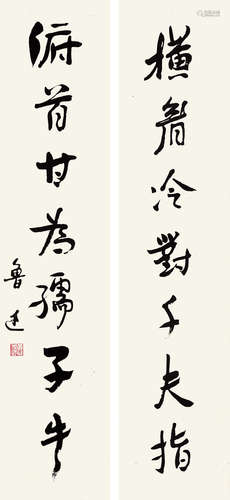 橫眉冷對千夫指
俯首甘為孺子牛
魯